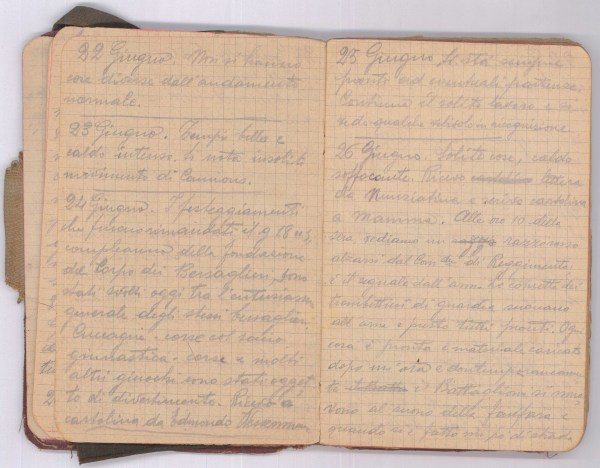 22 Giugno. Non vi furono
cose diverse dall'andamento
normale.
23 Giugno. Tempo bello e
caldo intenso. Si nota insolito
movimento di Cannoni.
24 Giugno. I festeggiamenti
che furono rimandati il g 18 u.s.
compleanno della fondazione
del Corpo dei Bersaglieri, sono
stati svolti oggi tra l'entusiasmo
generale degli stessi Bersaglieri.
Cuccagni - corse col sacco
ginnastica - corse e molti
altri giuochi sono stati ogget
to di divertimento. Ricevo
cartolina da Edmundo
25 Giugno Si sta sempre
pronti ad eventuali partenze.
Continua il solito lavoro e si
vede qualche velivolo in ricognizione
26 Giugno. Solite cose, caldo
soffocante. Ricevo cartolina lettera
da Nunziatina e scrivo cartolina
a Mamma. Alle ore 10 della
sera vediamo un razzo rosso
alzarsi dal Com.do di Reggimento:
è il segnale dall'armi. Le cornette dei
trombettieri di guardia suonano
all'armi e presto tutti pronti. Ogni
cosa è pronta e materiale caricato
dopo un'ora e contemporaneamen
te i Battaglioni si muo
vono al suono delle fanfare e
quando si è fatto un po' di strada